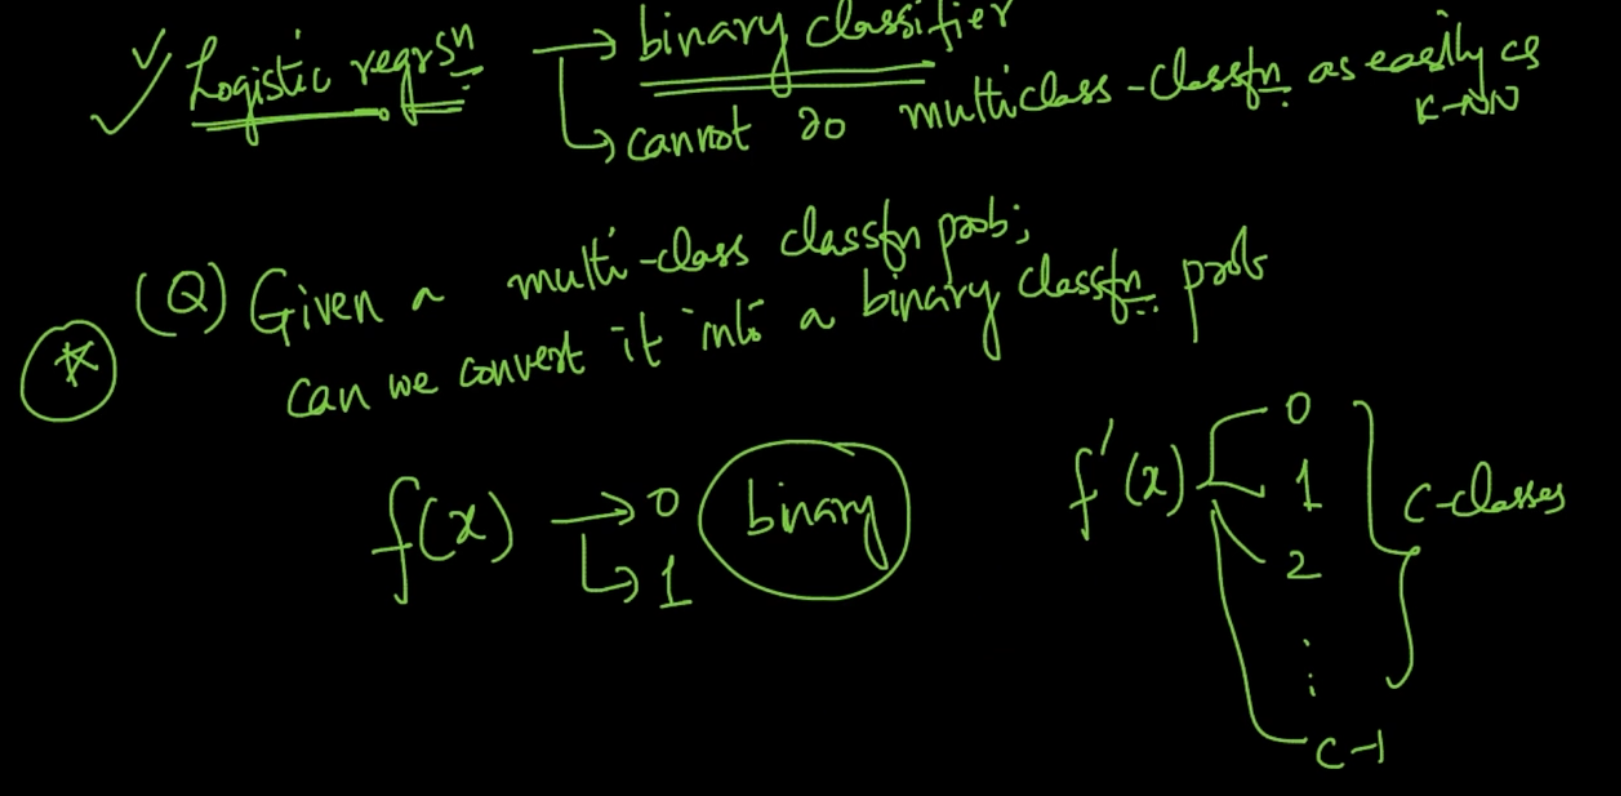 Logistic regrsn → binary classifier
↳ cannot do multiclass-classfn as easily as
K-NN
(Q) Given a multi-class classfn prob;
can we convert it into a binary classfn prob
f(x) → 0 binary
↳ 1
f'(x) 0
1 C-classes
2
⋮
C-1